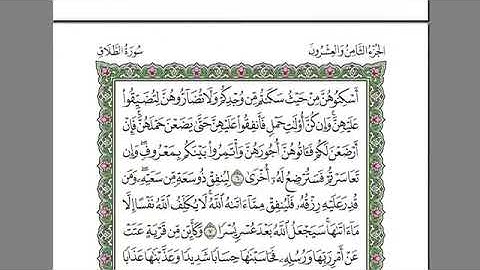 الجزء الثامن والعشرون
سورة الطلاق
أَسْكِنُوهُنَّ مِنْ حَيْثُ سَكَنتُم مِّن وُجْدِكُمْ وَلَا تُضَآرُّوهُنَّ لِتُضَيِّقُوا۟
عَلَيْهِنَّ ۚ وَإِن كُنَّ أُو۟لَٰتِ حَمْلٍ فَأَنفِقُوا۟ عَلَيْهِنَّ حَتَّىٰ يَضَعْنَ حَمْلَهُنَّ ۚ فَإِنْ
أَرْضَعْنَ لَكُمْ فَـَٔاتُوهُنَّ أُجُورَهُنَّ ۖ وَأْتَمِرُوا۟ بَيْنَكُم بِمَعْرُوفٍ ۖ وَإِن
تَعَاسَرْتُمْ فَسَتُرْضِعُ لَهُۥٓ أُخْرَىٰ ٦ لِيُنفِقْ ذُو سَعَةٍ مِّن سَعَتِهِۦ ۖ وَمَن
قُدِرَ عَلَيْهِ رِزْقُهُۥ فَلْيُنفِقْ مِمَّآ ءَاتَىٰهُ ٱللَّهُ ۚ لَا يُكَلِّفُ ٱللَّهُ نَفْسًا إِلَّا
مَآ ءَاتَىٰهَا ۚ سَيَجْعَلُ ٱللَّهُ بَعْدَ عُسْرٍ يُسْرًا ٧ وَكَأَيِّن مِّن قَرْيَةٍ عَتَتْ
عَنْ أَمْرِ رَبِّهَا وَرُسُلِهِۦ فَحَاسَبْنَٰهَا حِسَابًا شَدِيدًا وَعَذَّبْنَٰهَا عَذَابًا